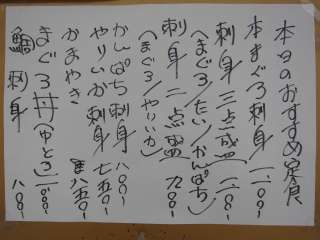 本日のおすすめ定食
本まぐろ刺身 一二〇〇-
刺身三点盛 一一〇〇-
(まぐろ/たい/かんぱち)
刺身二点盛 九〇〇-
(まぐろ/やりいか)
かんぱち刺身 八〇〇-
やりいか刺身 七五〇-
かまやき 八五〇-
まぐろ丼(中とろ) 一二〇〇-
鯛刺身 八〇〇-